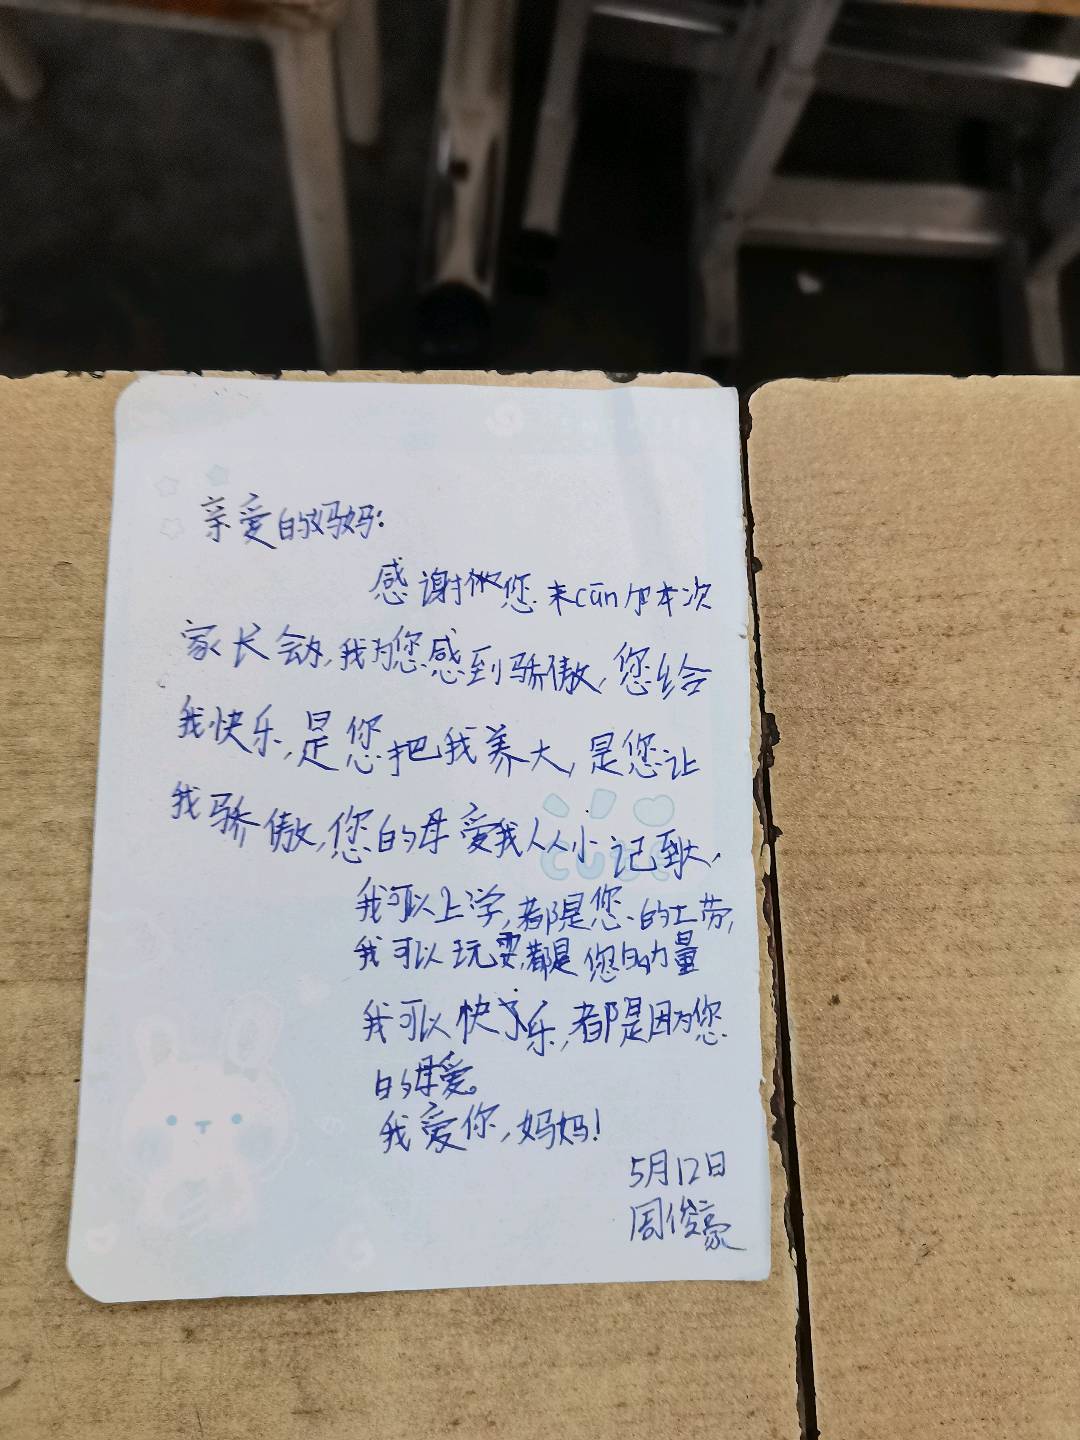 亲爱的妈妈:
感谢您来cūn加本次
家长会,我为您感到骄傲,您给
我快乐,是您把我养大,是您让
我骄傲,您的母爱我从小记到大,
我可以上学,都是您的工劳,
我可以玩耍,都是您的力量
我可以快乐,都是因为您
的母爱。
我爱你,妈妈!
5月12日
周俊豪
cute